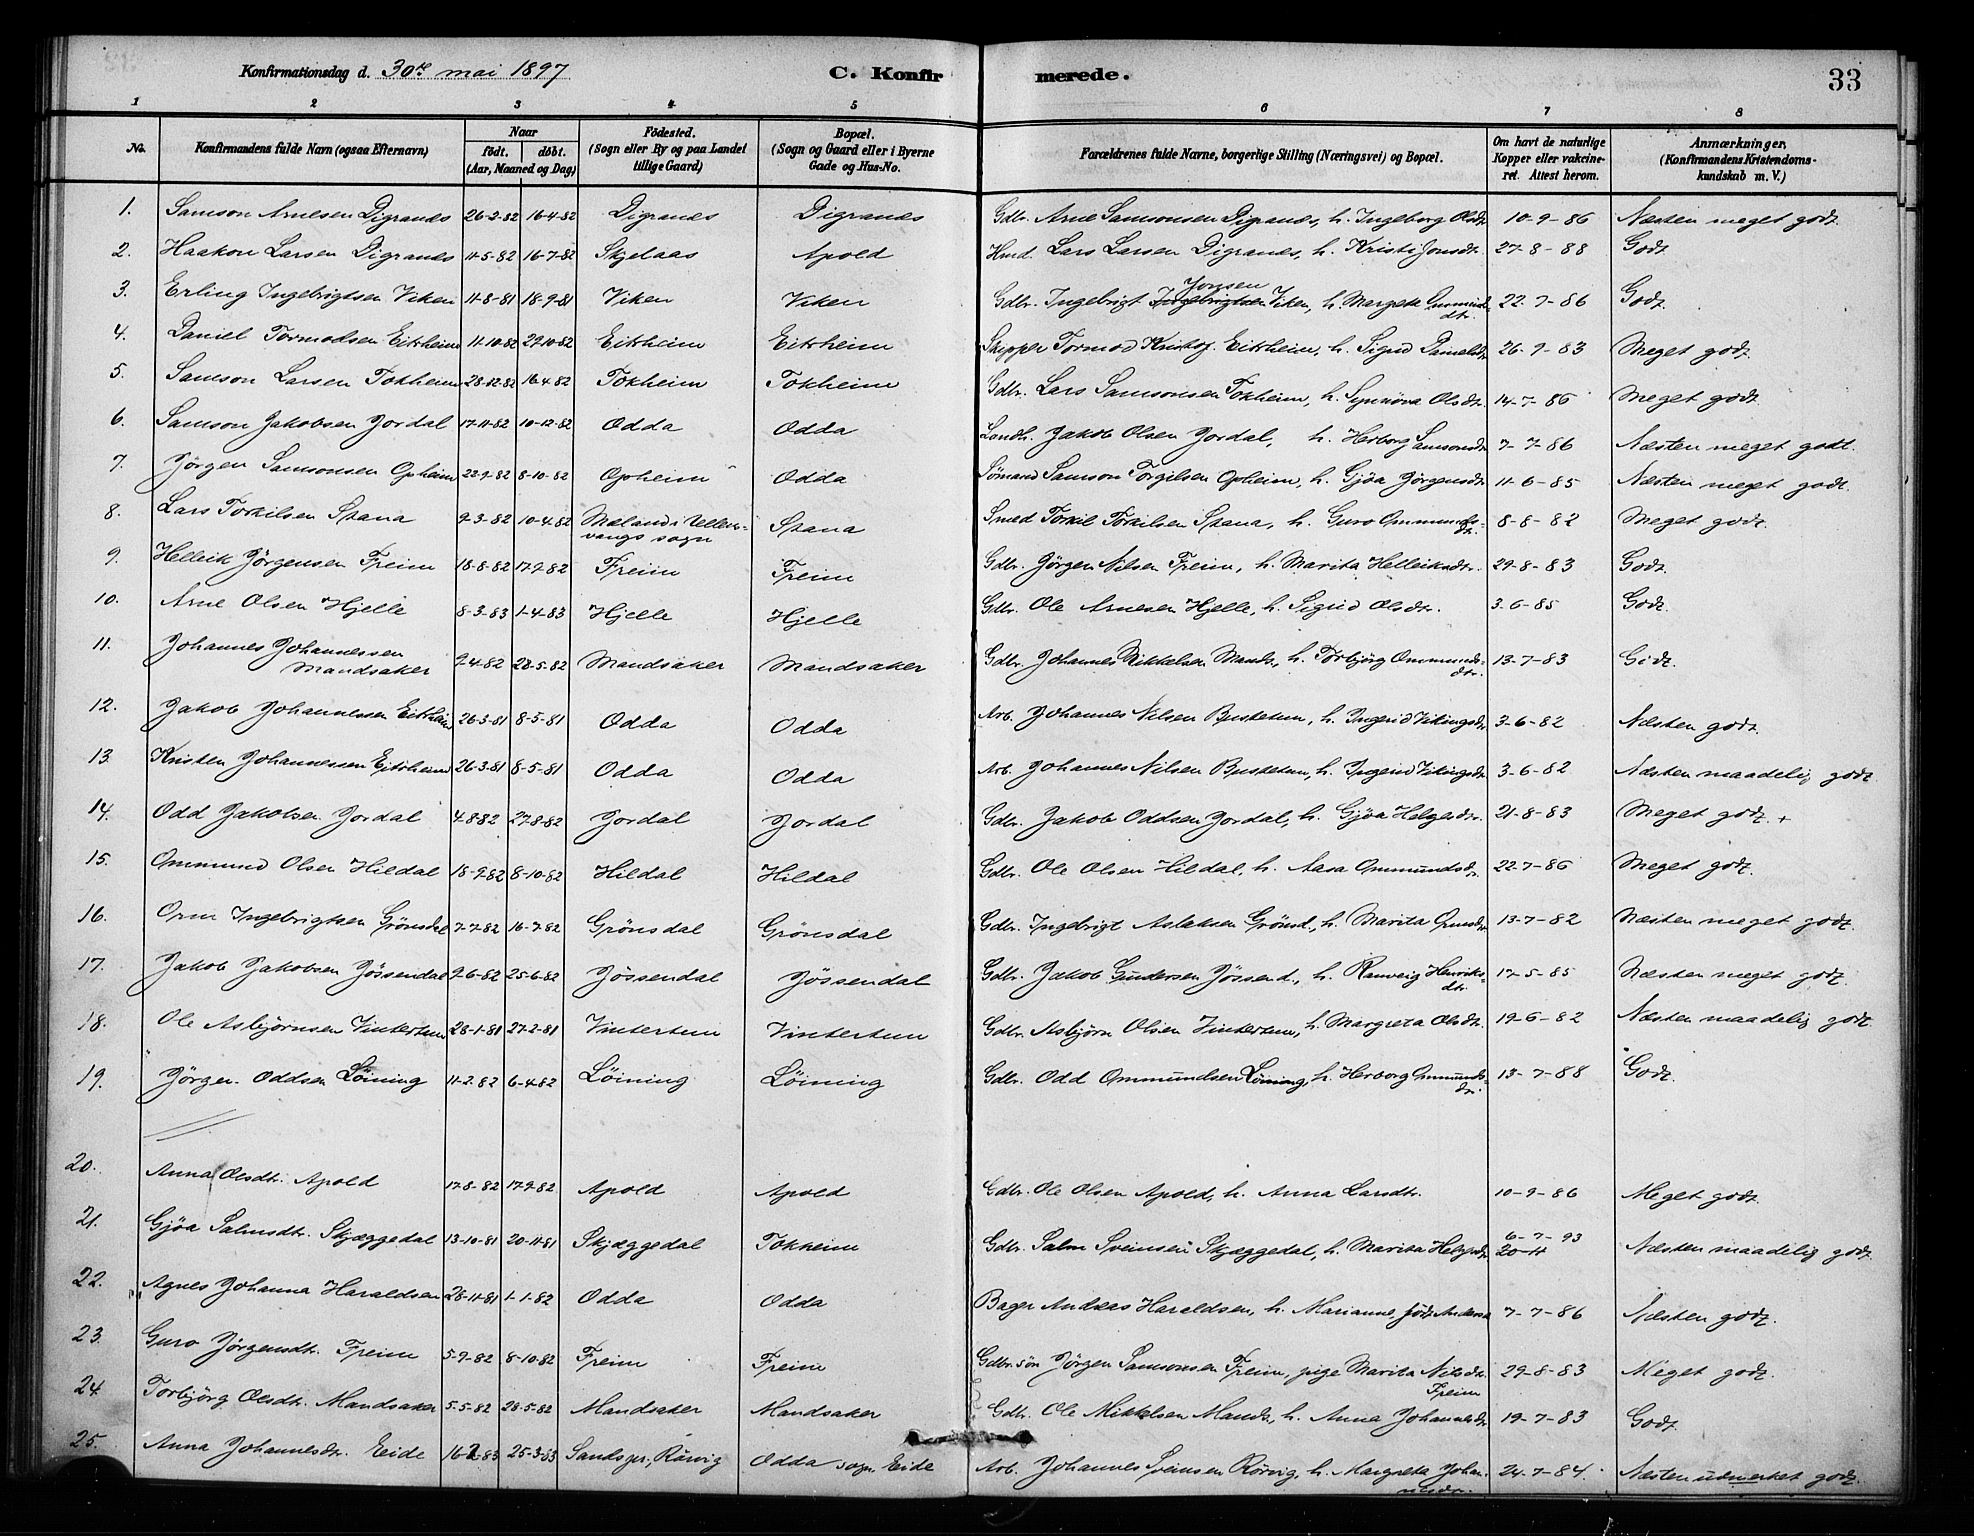 Konfirmationsdag d. 30te mai 1897 C. Konfir merede. 33
1 2 3 4 5 6 7 8
No. Konfirmandens fulde Navn (ogsaa Efternavn) Naar födt. döbt. (Aar, Maaned og Dag) Födested. (Sogn eller By og paa Landet tillige Gaard) Bopæl. (Sogn og Gaard eller i Byerne Gade og Hus-No. Forældrenes fulde Navne, borgerlige Stilling (Næringsvei) og Bopæl. Om havt de naturlige Kopper eller vakcineret. Attest herom. Anmærkninger. (Konfirmandens Kristendomskundskab m. V.)
1. Samson Arnesen Digranes 26-2-82 16-4-82 Digranes Digranes Gdbr. Arne Samsonsen Digranes, h. Ingeborg Olsdtr. 10-9-86 Næsten meget godt.
2. Haakon Larsen Digranes 11-5-82 16-7-82 Skjelaas Apold Hmd. Lars Larsen Digranes, h. Kristi Jonsdtr. 27-8-88 Godt.
3. Erling Ingebrigtsen Viken 11-8-81 18-9-81 Viken Viken Gdbr. Ingebrigt Ingebrigtsen Jonsen Viken, h. Margreta Ommundsdtr. 22-7-86 Godt.
4. Daniel Tormodsen Eitrheim 11-10-82 29-10-82 Eitrheim Eitrheim Skipper Tormod Kristof. Eitrheim, h. Sigrid Danielsdtr 26-9-83 Meget godt.
5. Samson Larsen Tokheim 28-12-82 16-4-82 Tokheim Tokheim Gdbr. Lars Samsonsen Tokheim, h. Synnöva Olsdtr. 14-7-86 Meget godt.
6. Samson Jakobsen Jordal 17-11-82 10-12-82 Odda Odda Landh. Jakob Olsen Jordal, h. Herborg Samsonsdtr 7-7-86 Næsten meget godt.
7. Jörgen Samsonsen Opheim 22-9-82 8-10-82 Opheim Odda Sömand Samson Torgilsen Opheim, h. Gjöa Jörgensdtr 11-6-85 Næsten meget godt.
8. Lars Torkilsen Stana 9-3-82 10-4-82 Mæland i Ullensvangs sogn Stana Smed Torkil Torkilsen Stana, h. Guro Ommundsdtr. 8-8-82 Meget godt.
9. Helleik Jörgensen Freim 18-8-82 17-9-82 Freim Freim Gdbr. Jörgen Nilsen Freim, h. Marita Helleiksdtr. 29-8-83 Godt.
10. Arne Olsen Hjelle 8-3-83 1-4-83 Hjelle Hjelle Gdbr. Ole Arnesen Hjelle, h. Sigrid Olsdtr. 3-6-85 Godt.
11. Johannes Johannessen Mandsaker 9-4-82 28-5-82 Mandsaker Mandsaker Gdbr. Johannes Mikkelsen Mands., h. Torbjörg Ommundsdtr. 13-7-83 Godt.
12. Jakob Johannessen Eitrheim 26-3-81 8-5-81 Odda Odda Arb. Johannes Nilsen Busketun, h. Ingerid Vikingsdtr 3-6-82 Næsten godt.
13. Kristen Johannessen Eitrheim 26-3-81 8-5-81 Odda Odda Arb. Johannes Nilsen Busketun, h. Ingerid Vikingsdtr 3-6-82 Næsten maadelig godt
14. Odd Jakobsen Jordal 4-8-82 27-8-82 Jordal Jordal Gdbr. Jakob Oddsen Jordal, h. Gjöa Helgesdtr. 21-8-83 Meget godt. +
15. Ommund Olsen Hildal 18-9-82 8-10-82 Hildal Hildal Gdbr. Ole Olsen Hildal, h. Aasa Ommundsdtr. 22-7-86 Meget godt.
16. Orm Ingebrigtsen Grönsdal 7-7-82 16-7-82 Grönsdal Grönsdal Gdbr. Ingebrigt Aslaksen Grönsd., h. Marita Ormsdtr 13-7-82 Næsten meget godt.
17. Jakob Jakobsen Jössendal 9-6-82 25-6-82 Jössendal Jössendal Gdbr. Jakob Gundersen Jössend., h. Ranveig Henriksdtr. 17-5-85 Næsten meget godt.
18. Ole Asbjörnsen Vintertun 28-1-81 27-2-81 Vintertun Vintertun Gdbr. Asbjörn Olsen Vintertun, h. Margreta Olsdtr. 19-6-82 Næsten maadelig godt.
19. Jörgen Oddsen Löining 11-2-82 6-4-82 Löining Löining Gdbr. Odd Ommundsen Löining, h. Herborg Ommundsdtr. 13-7-88 Godt.
20. Anna Olsdtr. Apold 17-8-82 17-9-82 Apold Apold Gdbr. Ole Olsen Apold, h. Anna Larsdtr. 10-9-86 Meget godt.
21. Gjöa Salmsdtr. Skjæggedal 13-10-81 20-11-81 Skjæggedal Tokheim Gdbr. Salm Sveinsen Skjæggedal, h. Marita Helgesdtr 6-7-93 20-11 Næsten maadelig godt.
22. Agnes Johanna Haraldsen 28-11-81 1-1-82 Odda Odda Bager Andreas Haraldsen, h. Marianne, född 7-7-86 Næsten godt.
23. Guro Jörgensdtr. Freim 5-9-82 8-10-82 Freim Freim Gdbrsön Jörgen Samsonsen Freim, pige Marita Nilsdtr. Freim 29-8-83 Meget godt.
24. Torbjörg Olsdtr. Mandsaker 5-5-82 28-5-82 Mandsaker Mandsaker Gdbr. Ole Mikkelsen Mands., h. Anna Johannesdtr 19-7-83 Godt.
25. Anna Johannesdtr. Eide 16-2-83 25-3-83 Sands pr., Rörvig Odda sogn, Eide Arb. Johannes Sveinsen Rörvig, h. Margreta Johannesdtr. 24-7-84. Næsten udmerket godt.